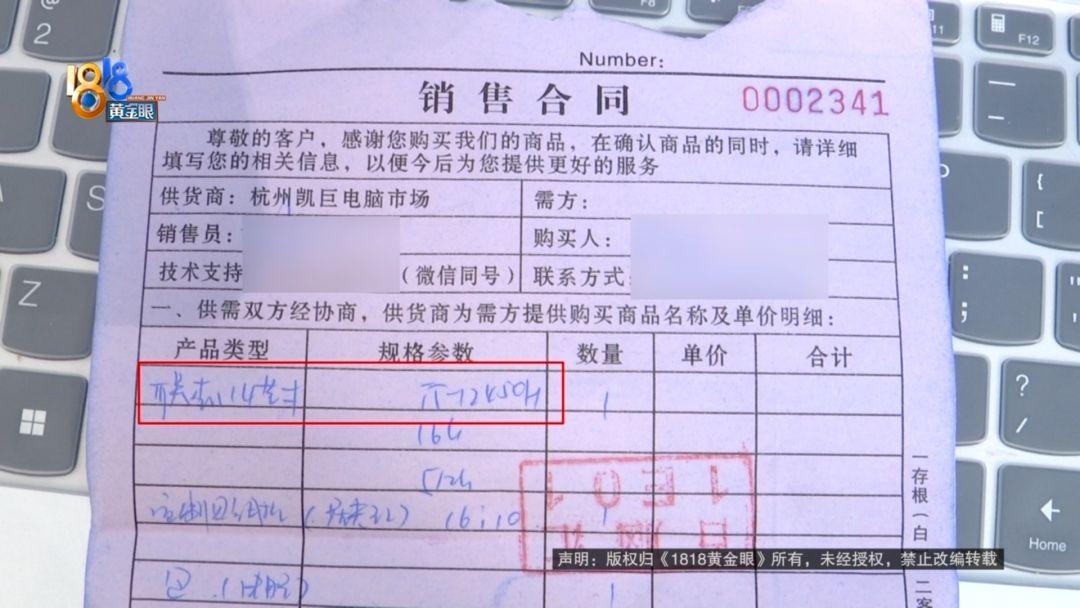 1818
HUANG JIN YAN
黄金眼
Number:
销售合同
0002341
尊敬的客户，感谢您购买我们的商品，在确认商品的同时，请详细
填写您的相关信息，以便今后为您提供更好的服务
供货商：杭州凯巨电脑市场 需方：
销售员： 购买人：
技术支持 （微信同号） 联系方式：
一、供需双方经协商，供货商为需方提供购买商品名称及单价明细：
产品类型 规格参数 数量 单价 合计
联想14英寸 i5-12450H 1
16G
512G
16:10 1
包 1
一存根（白
二客
声明：版权归《1818黄金眼》所有，未经授权，禁止改编转载
2
S
Z
F8
F11
F12
{
[
:
;
?
/
Home